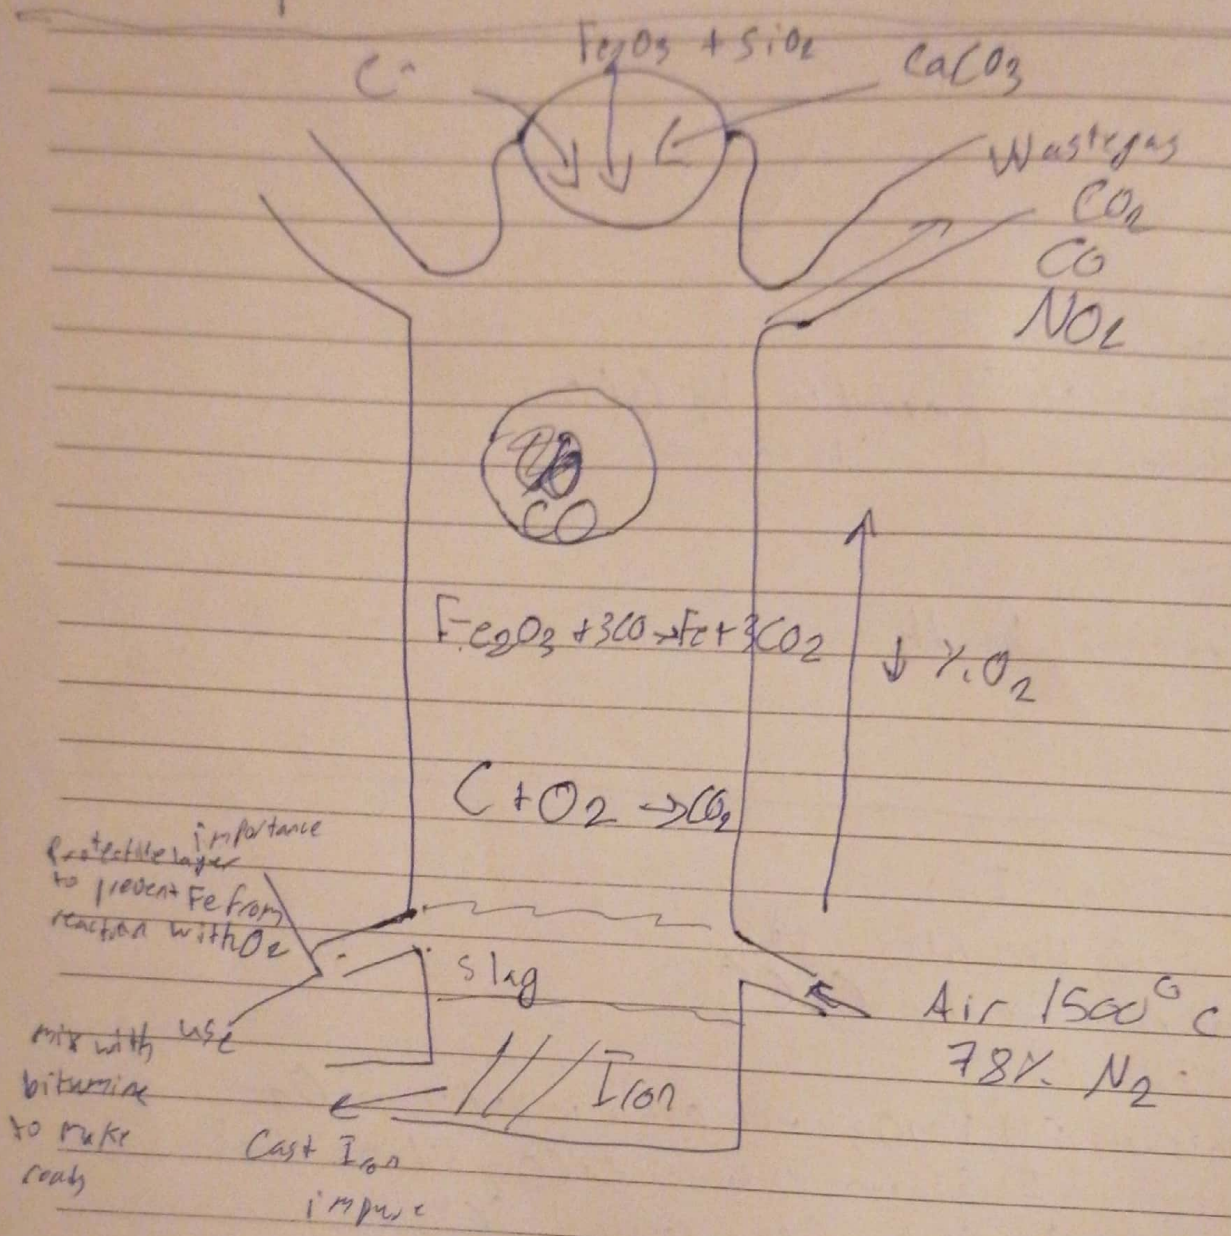 Fe2O3 + SiO2
C
CaCO3
Wastegas
CO2
CO
NO2
CO
Fe2O3 + 3CO → Fe + 3CO2
↓ %O2
C + O2 → CO2
importance
Protective layer
to prevent Fe from
reaction with O2
slag
Air 1500°C
78% N2
use
mix with
bitumine
to make
roads
Iron
Cast Iron
impure